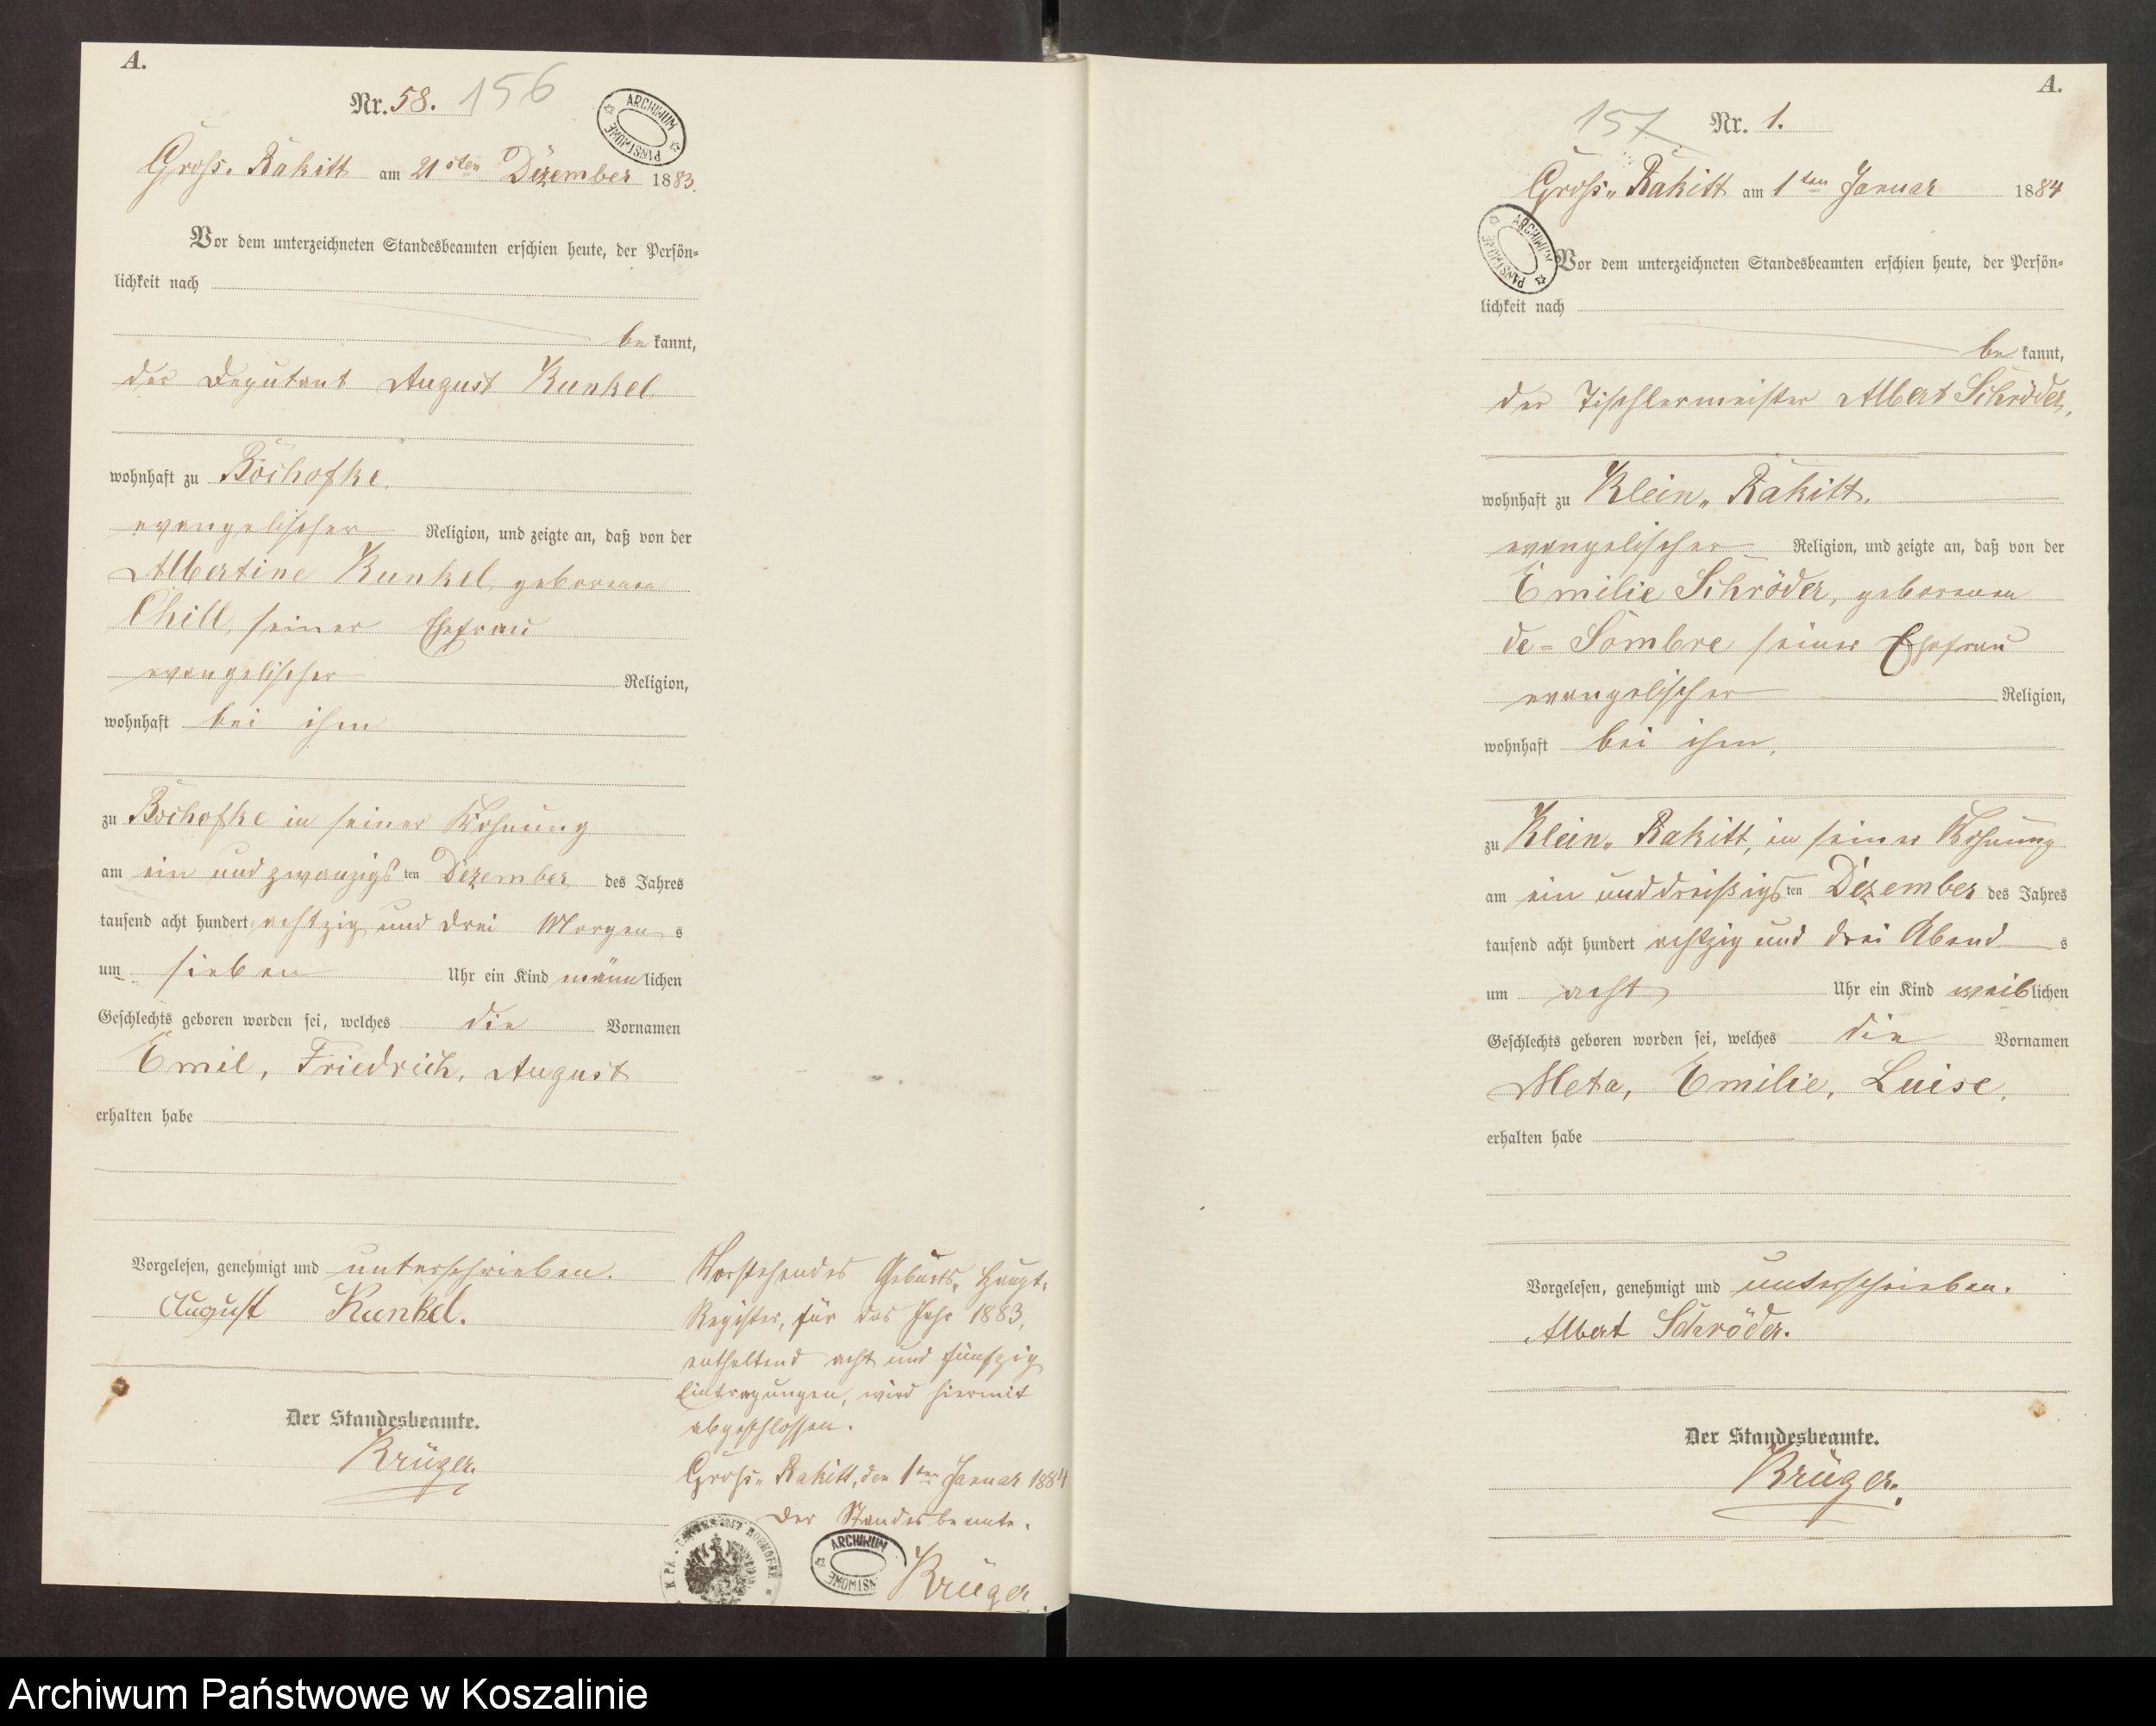 A.
Nr. 58. 156
ARCHIWUM PAŃSTWOWE
Gross. Rakitt am 21sten Dezember 1883.
Vor dem unterzeichneten Standesbeamten erschien heute, der Persön-
lichkeit nach
be kannt,
der Deputant August Kunkel
wohnhaft zu Bochofke.
evangelischer Religion, und zeigte an, daß von der
Albertine Kunkel, geborenen
Chill, seiner Ehefrau
evangelischer Religion,
wohnhaft bei ihm
zu Bochofke in seiner Wohnung
am ein und zwanzigsten Dezember des Jahres
tausend acht hundert achtzig und drei Morgens
um sieben Uhr ein Kind männlichen
Geschlechts geboren worden sei, welches die Vornamen
Emil, Friedrich, August
erhalten habe
Vorgelesen, genehmigt und unterschrieben.
August Kunkel.
Der Standesbeamte.
Krüger.
Vorstehendes Geburts-Haupt-
Register, für das Jahr 1883,
enthaltend acht und fünfzig
Eintragungen, wird hiermit
abgeschlossen.
Gross-Rakitt, den 1ten Januar 1884
Der Standesbeamte.
ARCHIWUM PAŃSTWOWE
Krüger.
A.
157 Nr. 1.
Gross-Rakitt am 1ten Januar 1884
ARCHIWUM PAŃSTWOWE
Vor dem unterzeichneten Standesbeamten erschien heute, der Persön-
lichkeit nach
be kannt,
der Tischlermeister Albert Schröder,
wohnhaft zu Klein-Rakitt.
evangelischer Religion, und zeigte an, daß von der
Emilie Schröder, geborenen
de-Sombre seiner Ehefrau
evangelischer Religion,
wohnhaft bei ihm,
zu Klein-Rakitt, in seiner Wohnung
am ein und dreißigsten Dezember des Jahres
tausend acht hundert achtzig und drei Abends
um acht Uhr ein Kind weiblichen
Geschlechts geboren worden sei, welches die Vornamen
Meta, Emilie, Luise,
erhalten habe
Vorgelesen, genehmigt und unterschrieben.
Albert Schröder.
Der Standesbeamte.
Krüger.
Archiwum Państwowe w Koszalinie